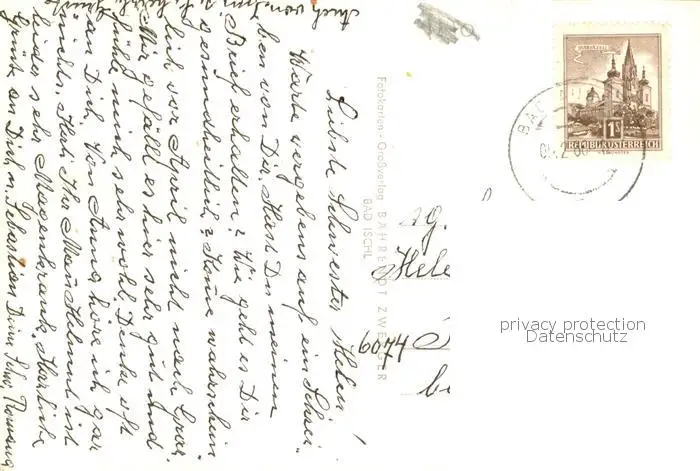 Liebste Schwester Helen!
Warte vergebens auf ein Schrei-
ben von Dir. Hast Du meinen
Brief erhalten? Wie geht es Dir
gesundheitlich? Komme wahrschein
lich vor April nicht nach Graz.
Mir gefällt es hier sehr gut und
fühle mich sehr wohl. Denke oft
an Dich. Von Anna höre ich gar
nichts. Ihr Mann Helmut ist
leider sehr Magenkrank. Herzliche
Grüße an Dich u. Sebastian Deine Schw.
Auch von
Fotokarten-Großverlag BÄHRENDT ZWERGER
BAD ISCHL
REPUBLIK ÖSTERREICH
1S
BAD
Hele
6074
privacy protection
Datenschutz